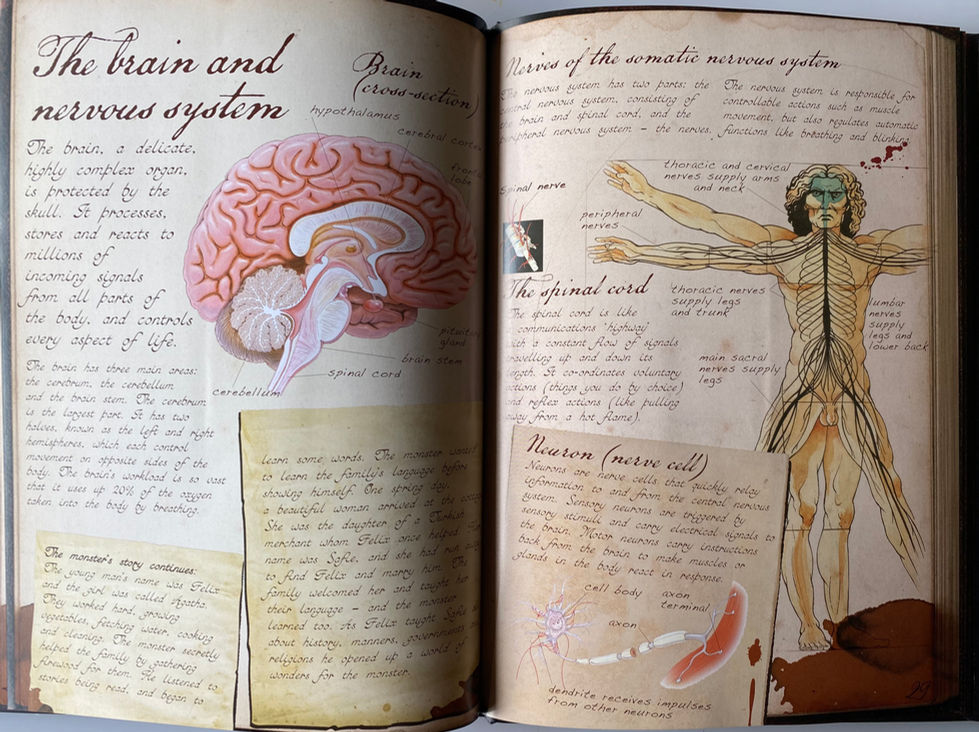 The brain and
nervous system
The brain, a delicate,
highly complex organ,
is protected by the
skull. It processes,
stores and reacts to
millions of
incoming signals
from all parts of
the body, and controls
every aspect of life.
The brain has three main areas:
the cerebrum, the cerebellum
and the brain stem. The cerebrum
is the largest part. It has two
halves, known as the left and right
hemispheres, which each control
movement on opposite sides of the
body. The brain's workload is so vast
that it uses up 20% of the oxygen
taken into the body by breathing.
Brain
(cross-section)
hypothalamus
cerebral cortex
lobe
gland
brain stem
spinal cord
cerebellum
The monster's story continues:
The young man's name was Felix
and the girl was called Agatha.
They worked hard, growing
vegetables, fetching water, cooking
and cleaning. The monster secretly
helped the family by gathering
firewood for them. He listened to
stories being read, and began to
learn some words. The monster wanted
to learn the family's language before
showing himself. One spring day,
a beautiful woman arrived at the
She was the daughter of a Turkish
merchant whom Felix once helped.
name was Safie, and she had run away
to find Felix and marry him. The
family welcomed her and taught her
their language – and the monster
learned too. As Felix taught Safie
about history, manners, governments
religions he opened up a world of
wonders for the monster.
Nerves of the somatic nervous system
The nervous system has two parts: the
central nervous system, consisting of
the brain and spinal cord, and the
peripheral nervous system – the nerves.
The nervous system is responsible for
controllable actions such as muscle
movement, but also regulates automatic
functions like breathing and blinking.
Spinal nerve
thoracic and cervical
nerves supply arms
and neck
peripheral
nerves
The spinal cord
The spinal cord is like
communications 'highway'
with a constant flow of signals
travelling up and down its
length. It co-ordinates voluntary
actions (things you do by choice)
and reflex actions (like pulling
away from a hot flame).
thoracic nerves
supply legs
and trunk
main sacral
nerves supply
legs
lumbar
nerves
supply
legs and
lower back
Neuron (nerve cell)
Neurons are nerve cells that quickly relay
information to and from the central nervous
system. Sensory neurons are triggered by
sensory stimuli and carry electrical signals to
the brain. Motor neurons carry instructions
back from the brain to make muscles or
glands in the body react in response.
cell body
axon
terminal
axon
dendrite receives impulses
from other neurons
29